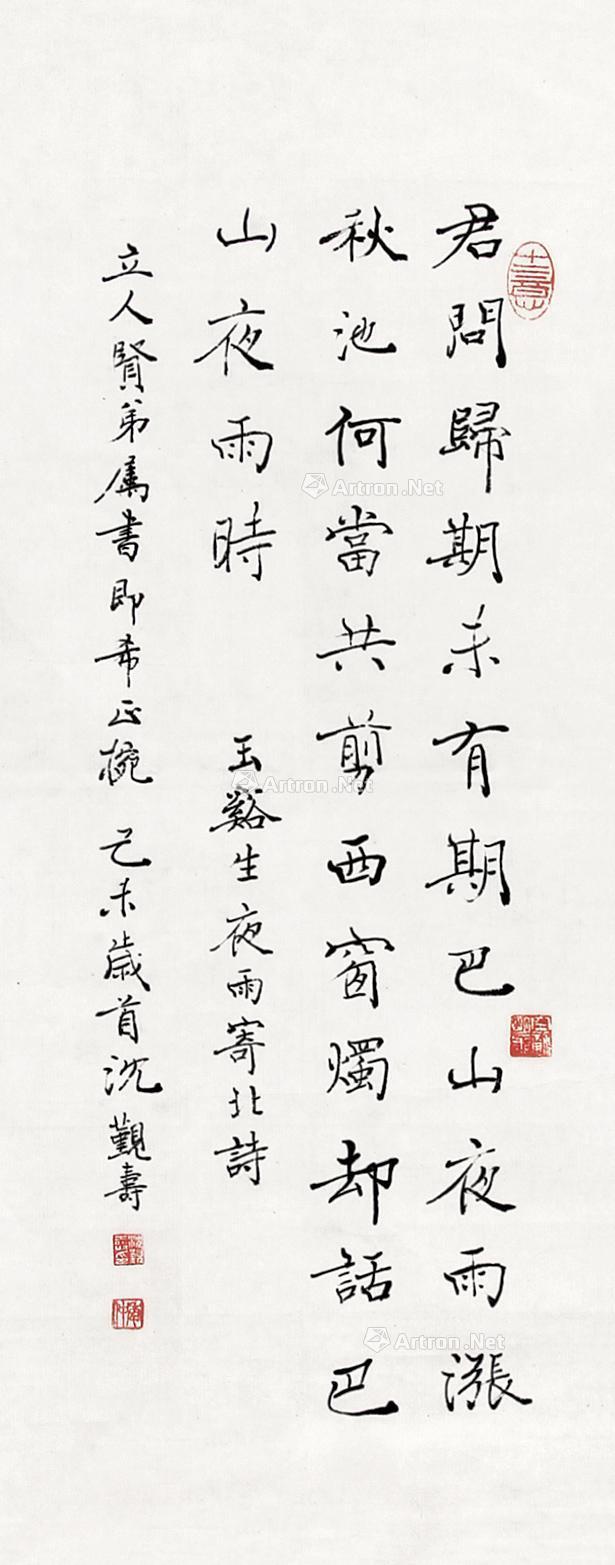 君問歸期未有期巴山夜雨漲
秋池何當共剪西窗燭却話巴
山夜雨時
玉谿生夜雨寄北詩
立人賢弟属書即希正椀 己未歲首沈觀壽
Artron.Net
Artron.Net
Artron.Net